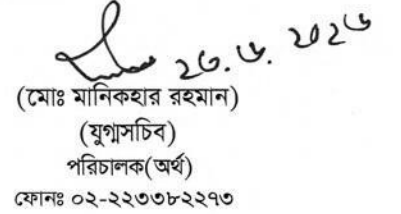 ২৩. ৬. ২০২৬
(মোঃ মানিকহার রহমান)
(যুগ্মসচিব)
পরিচালক(অর্থ)
ফোনঃ ০২-২২৩৩৮২২৭৩